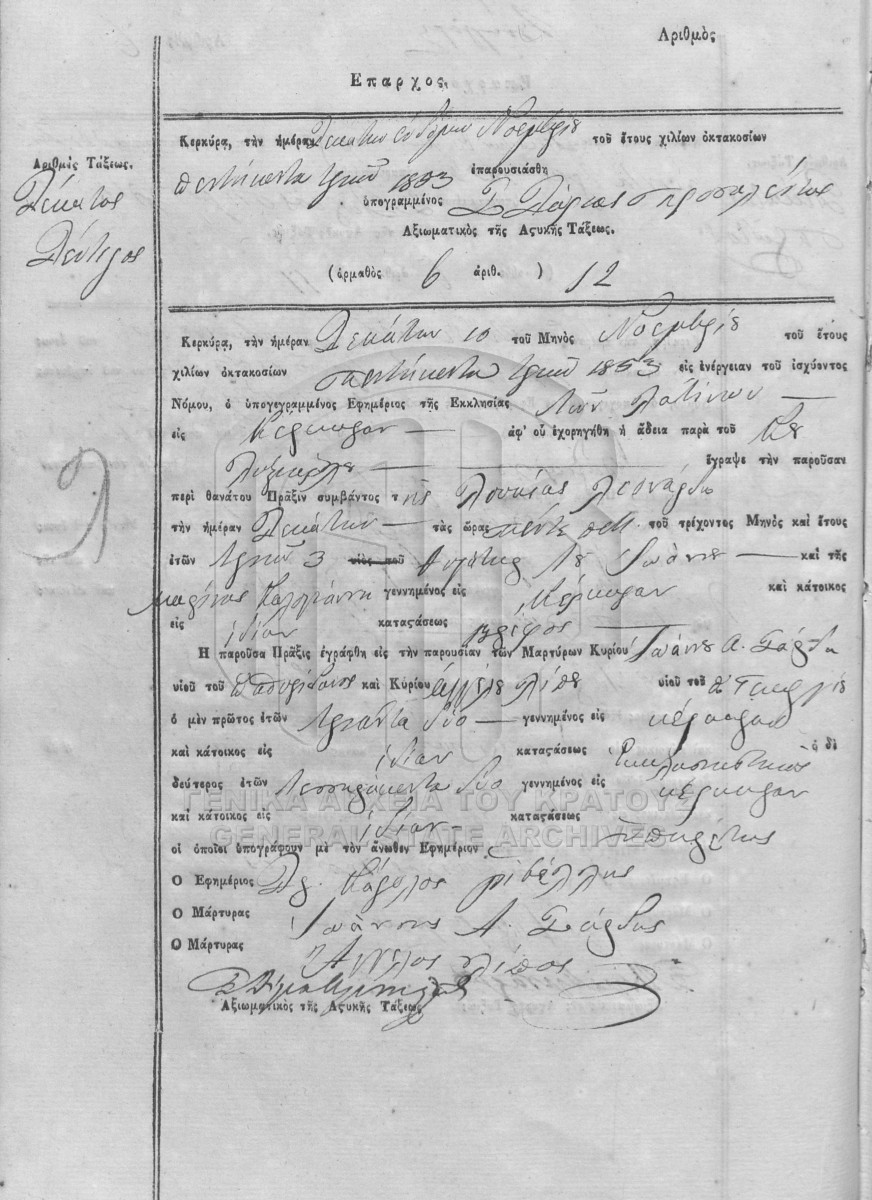 Ἀριθμὸς
Επαρχος.
Κερκύρα, τὴν ἡμέραν Δεκάτην ἑβδόμην Νοεμβρίου τοῦ ἔτους χιλίων ὀκτακοσίων
πεντήκοντα τριῶν 1853 ἐπαρουσιάσθη
ὑπογραμμένος
Ἀξιωματικὸς τῆς Ἀςυκῆς Τάξεως.
(ὁρμαθὸς 6 ἀριθ. ) 12
Ἀριθμὸς Τάξεως.
Δέκατος
Δεύτερος
Κερκύρα, τὴν ἡμέραν Δεκάτην 10 τοῦ Μηνὸς Νοεμβρίου τοῦ ἔτους
χιλίων ὀκτακοσίων πεντήκοντα τριῶν 1853 εἰς ἐνέργειαν τοῦ ἰσχύοντος
Νόμου, ὁ ὑπογεγραμμένος Ἐφημέριος τῆς Ἐκκλησίας τῶν Λατίνων
εἰς Κέρκυραν ἀφ' οὗ ἐχορηγήθη ἡ ἄδεια παρὰ τοῦ Κου
ἔγραψε τὴν παροῦσαν
περὶ θανάτου Πρᾶξιν συμβάντος τῆς Λουκίας Λεονάρδου
τὴν ἡμέραν Δεκάτην τὰς ὥρας πέντε τοῦ τρέχοντος Μηνὸς καὶ ἔτους
ἐτῶν τριῶν 3 υἱὸς τοῦ θυγάτηρ του Ἰωάννου καὶ τῆς
Μαρίνας Καλογιάννη γεννημένος εἰς Κέρκυραν καὶ κάτοικος
εἰς ἰδίαν καταςάσεως βρέφος
Ἡ παροῦσα Πρᾶξις ἐγράφθη εἰς τὴν παρουσίαν τῶν Μαρτύρων Κυρίου Ἰωάννου Α. Σάρδου
υἱοῦ τοῦ π Σπυρίδωνος καὶ Κυρίου Ἀγγέλου Λίπου υἱοῦ τοῦ π Γεωργίου
ὁ μὲν πρῶτος ἐτῶν τριάντα δύο γεννημένος εἰς Κέρκυραν
καὶ κάτοικος εἰς ἰδίαν καταςάσεως Ἐκκλησιαστικὸς ὁ δὲ
δεύτερος ἐτῶν τεσσαράκοντα δύο γεννημένος εἰς Κέρκυραν
καὶ κάτοικος εἰς ἰδίαν καταςάσεως Ὑπηρέτης
οἱ ὁποῖοι ὑπογράφουν μὲ τὸν ἄνωθεν Ἐφημέριον
Ὁ Ἐφημέριος Κάρολος Ριβέλλης
Ὁ Μάρτυρας Ἰωάννης Α. Σάρδης
Ὁ Μάρτυρας Ἄγγελος Λίπος
Ἀξιωματικὸς τῆς Ἀςυκῆς Τάξεως
ΓΕΝΙΚΑ ΑΡΧΕΙΑ ΤΟΥ ΚΡΑΤΟΥΣ
GENERAL STATE ARCHIVES